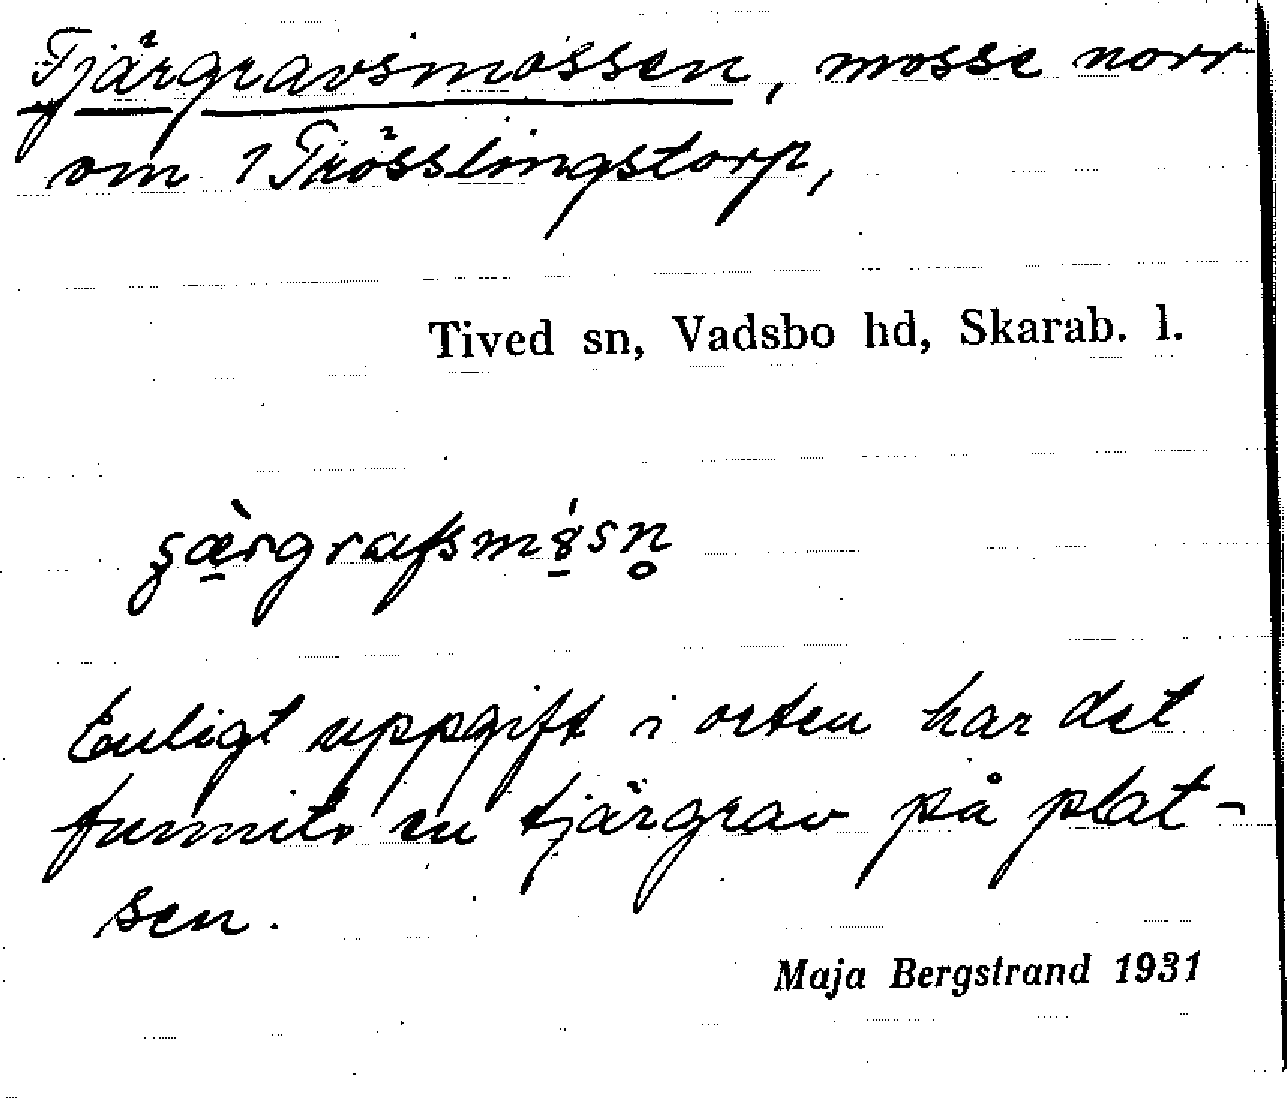 Tjärgravsmossen, mosse norr
om 1 Trösslingstorp,
Tived sn, Vadsbo hd, Skarab. l.
Enligt uppgift i orten har det
funnits en tjärgrav på plat-
sen.
Maja Bergstrand 1931